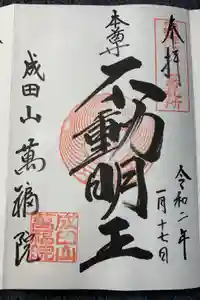 奉拝
令和二年
一月十七日
本尊
不動明王
成田山
萬福院
成田山
萬福院